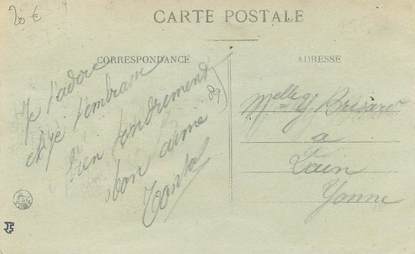 20 €
CARTE POSTALE
CORRESPONDANCE
ADRESSE
Je t'adore
et je t'embrasse
bien tendrement
ton aimé
Melle Y Brisard
a
Lain
Yonne